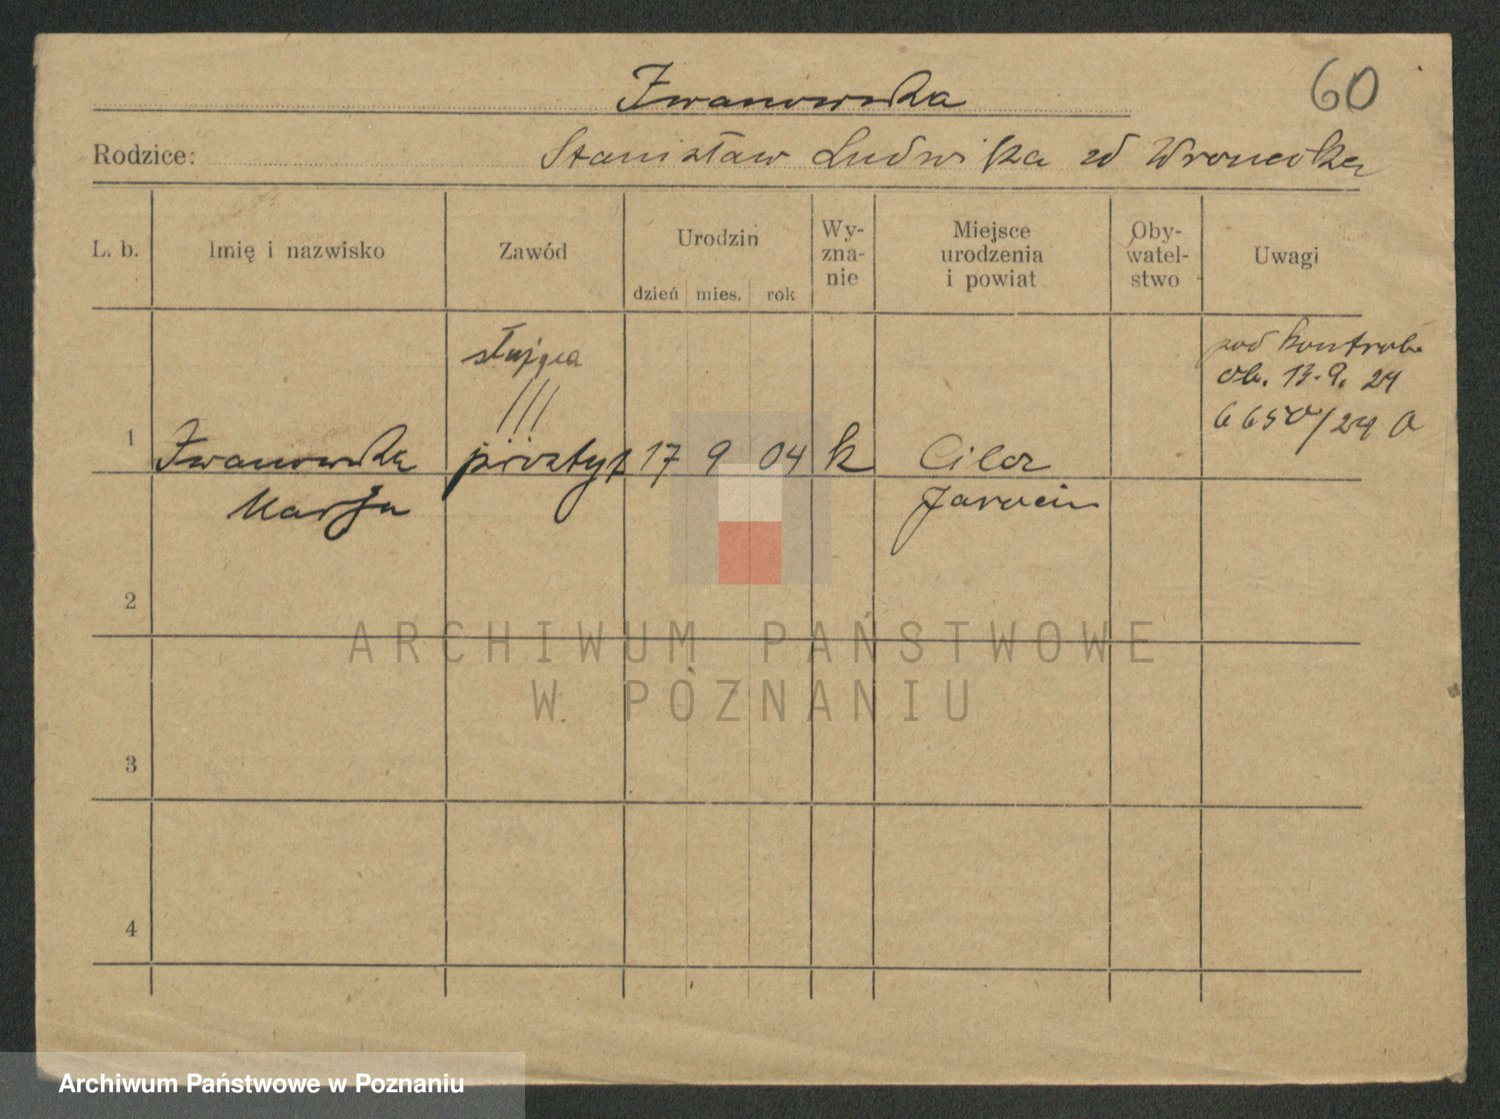 Iwanowska
60
Rodzice: Stanisław Ludwika zd Wronecka
L. b. Imię i nazwisko Zawód Urodzin Wy-zna-nie Miejsce urodzenia i powiat Oby-watel-stwo Uwagi
dzień mies. rok
służąca
pod kontrolą
ob. 13.9. 24
6650/24 O
1 Iwanowska 17 9 04 k Cilcz
Marja Jarocin
2
ARCHIWUM PAŃSTWOWE
W POZNANIU
3
4
Archiwum Państwowe w Poznaniu